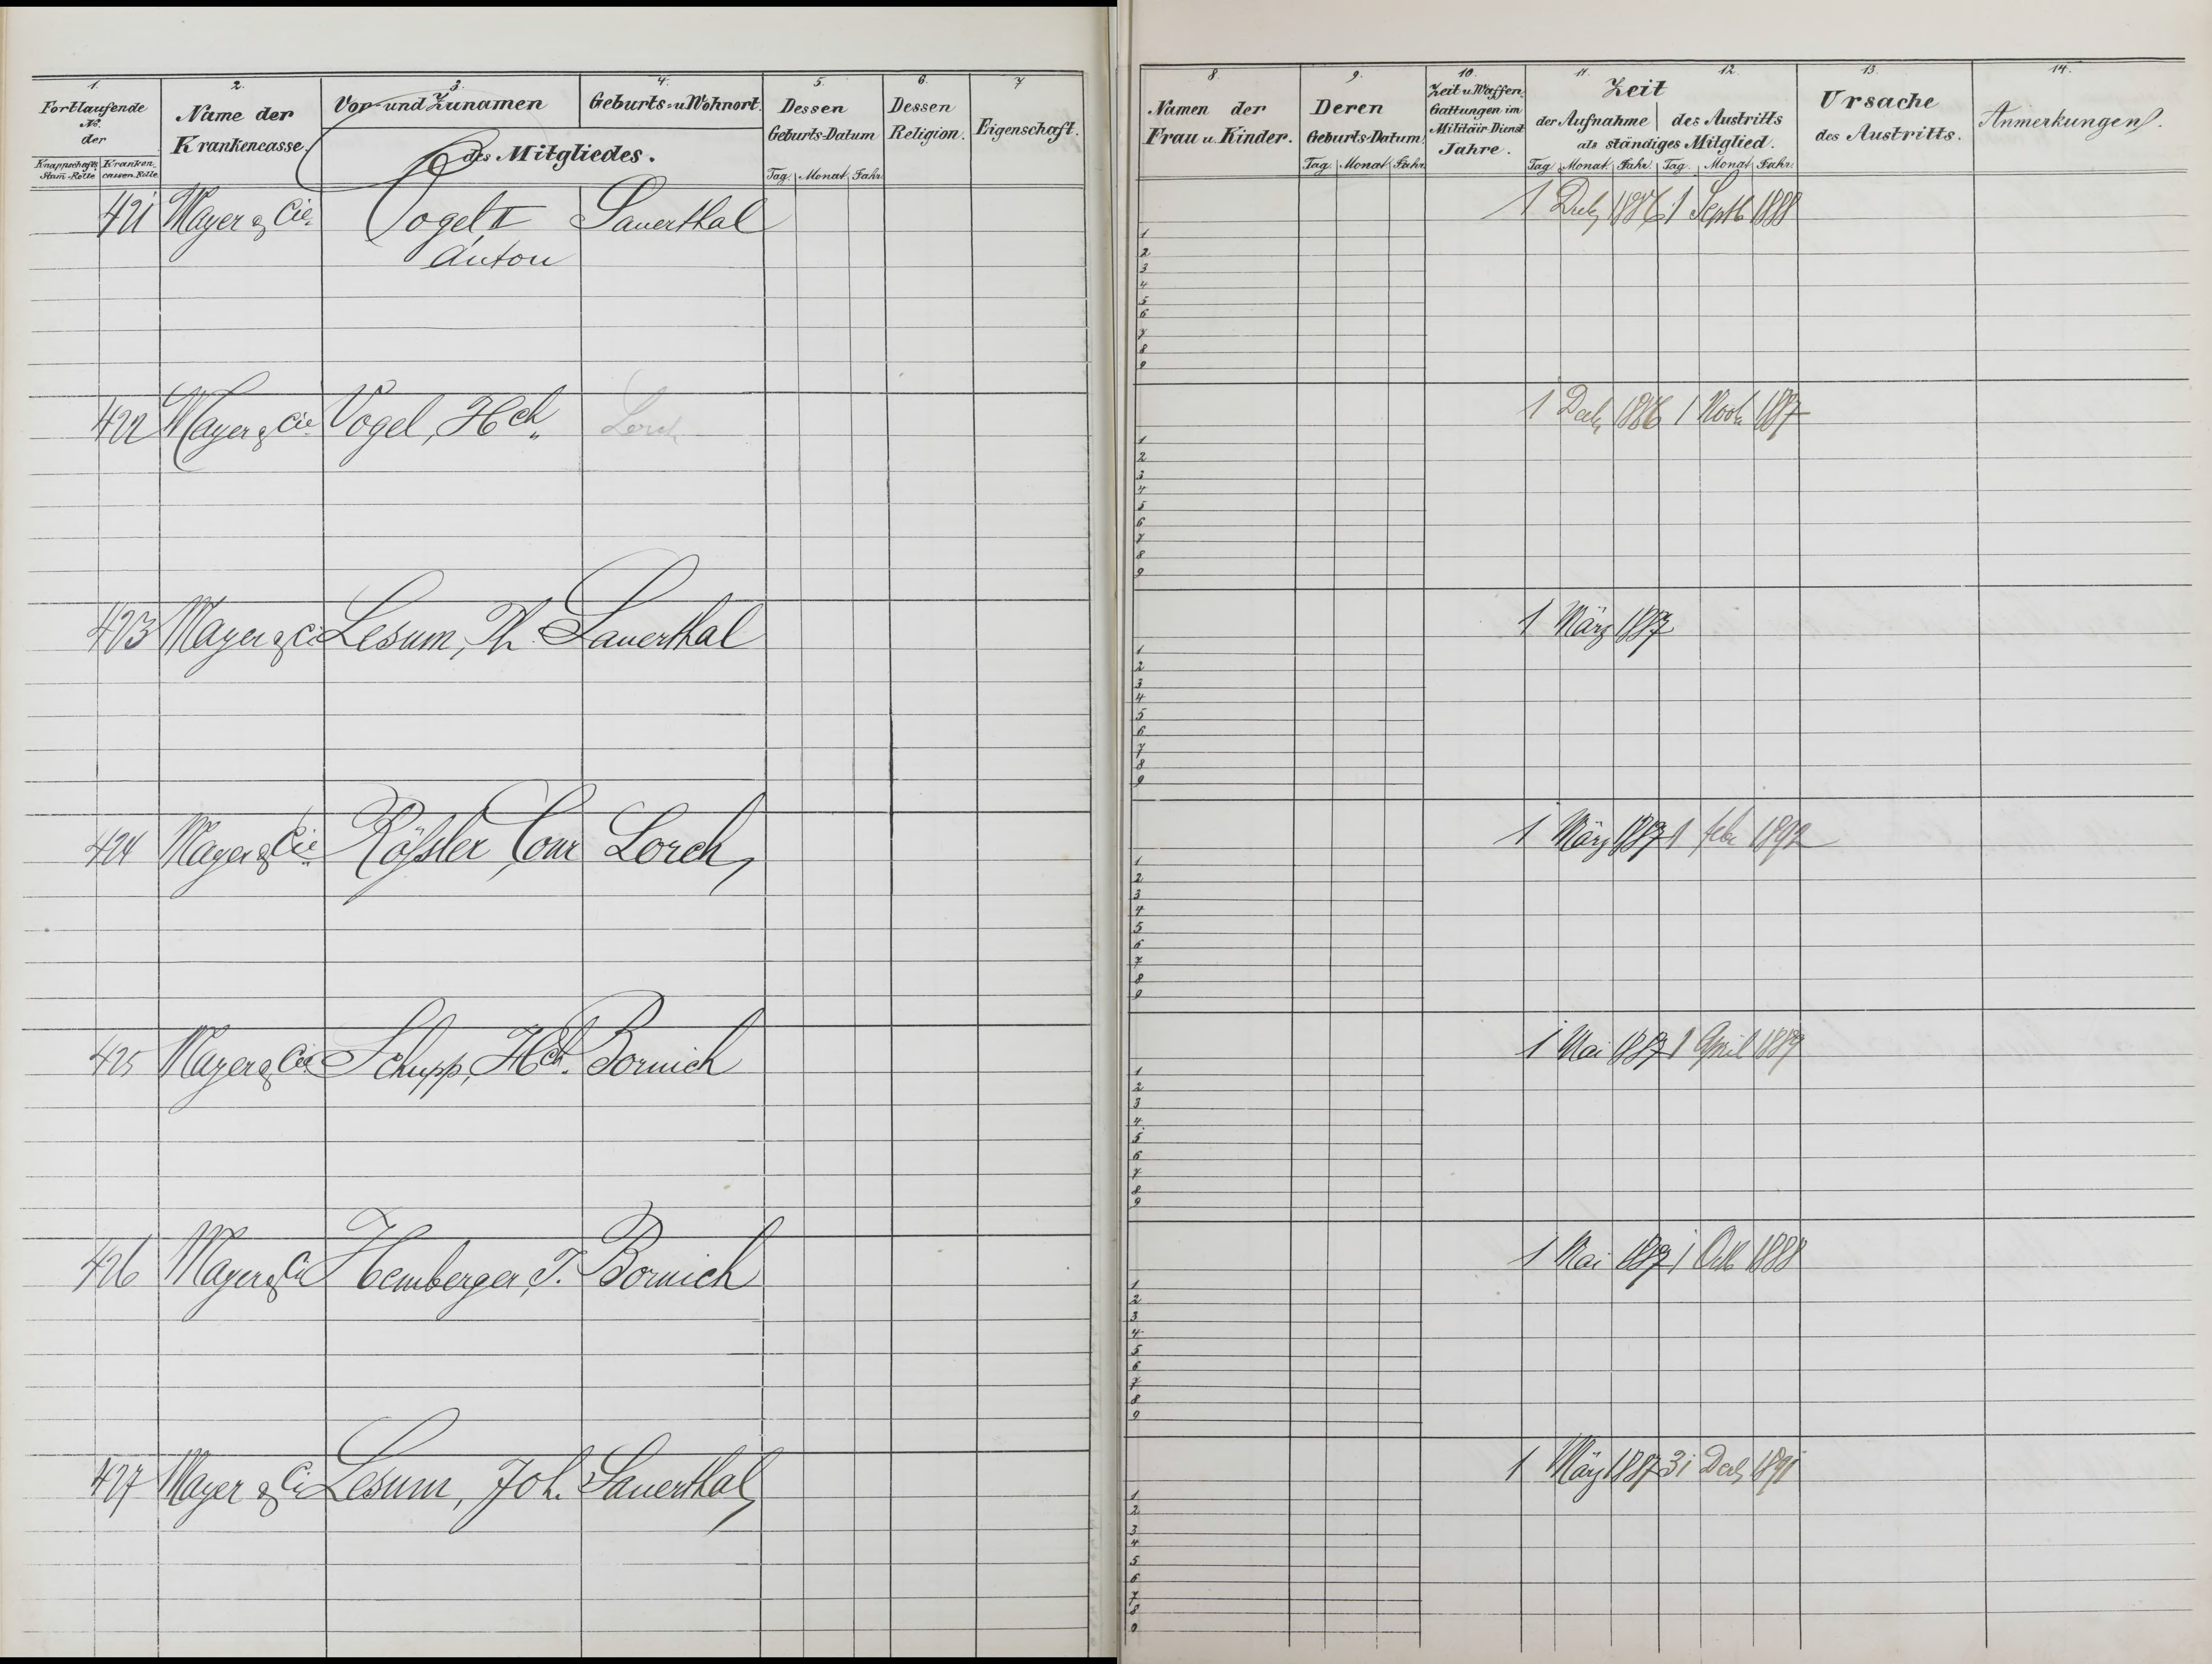 1. 2. 3. 4. 5. 6. 7
Fortlaufende
No.
der
Knappschafts Stam-Rolle Kranken cassen-Rolle
Name der
Krankencasse.
Vor- und Zunamen
Geburts- u Wohnort.
des Mitgliedes.
Dessen
Geburts-Datum
Tag. Monat. Jahr
Dessen
Religion.
Eigenschaft.
421 Mayer & Cie. Vogel, II Sauerthal
Anton
422 Mayer & Cie Vogel, Hch. Lorch
423 Mayer & Ci Lesum, Ph. Sauerthal
424 Mayer & Cie Rößler, Conr Lorch,
425 Mayer & Cie Schupp, Hch. Bornich
426 Mayer & Cie Hemberger, J. Bornich
427 Mayer & Ci Lesum, Joh. Sauerthal,
8. 9. 10. 11. 12. 13. 14.
Namen der
Frau u. Kinder.
Deren
Geburts-Datum
Tag Monat Jahr
Zeit u Waffen
Gattungen im
Militair-Dienst
Jahre.
Zeit
der Aufnahme des Austritts
als ständiges Mitglied.
Tag Monat Jahr Tag. Monat Jahr.
Ursache
des Austritts.
Anmerkungen.
1 1886 1 Septb 1888
1
2
3
4
5
6
7
8
9
1 1886 1 1887
1
2
3
4
5
6
7
8
9
1 März 1887
1
2
3
4
5
6
7
8
9
1 März 1887 1 febr 1892
1
2
3
4
5
6
7
8
9
1 Mai 1887 1 April 1889
1
2
3
4
5
6
7
8
9
1 Mai 1887 1 Octb 1888
1
2
3
4
5
6
7
8
9
1 März 1887 31 Decb 1891
1
2
3
4
5
6
7
8
9